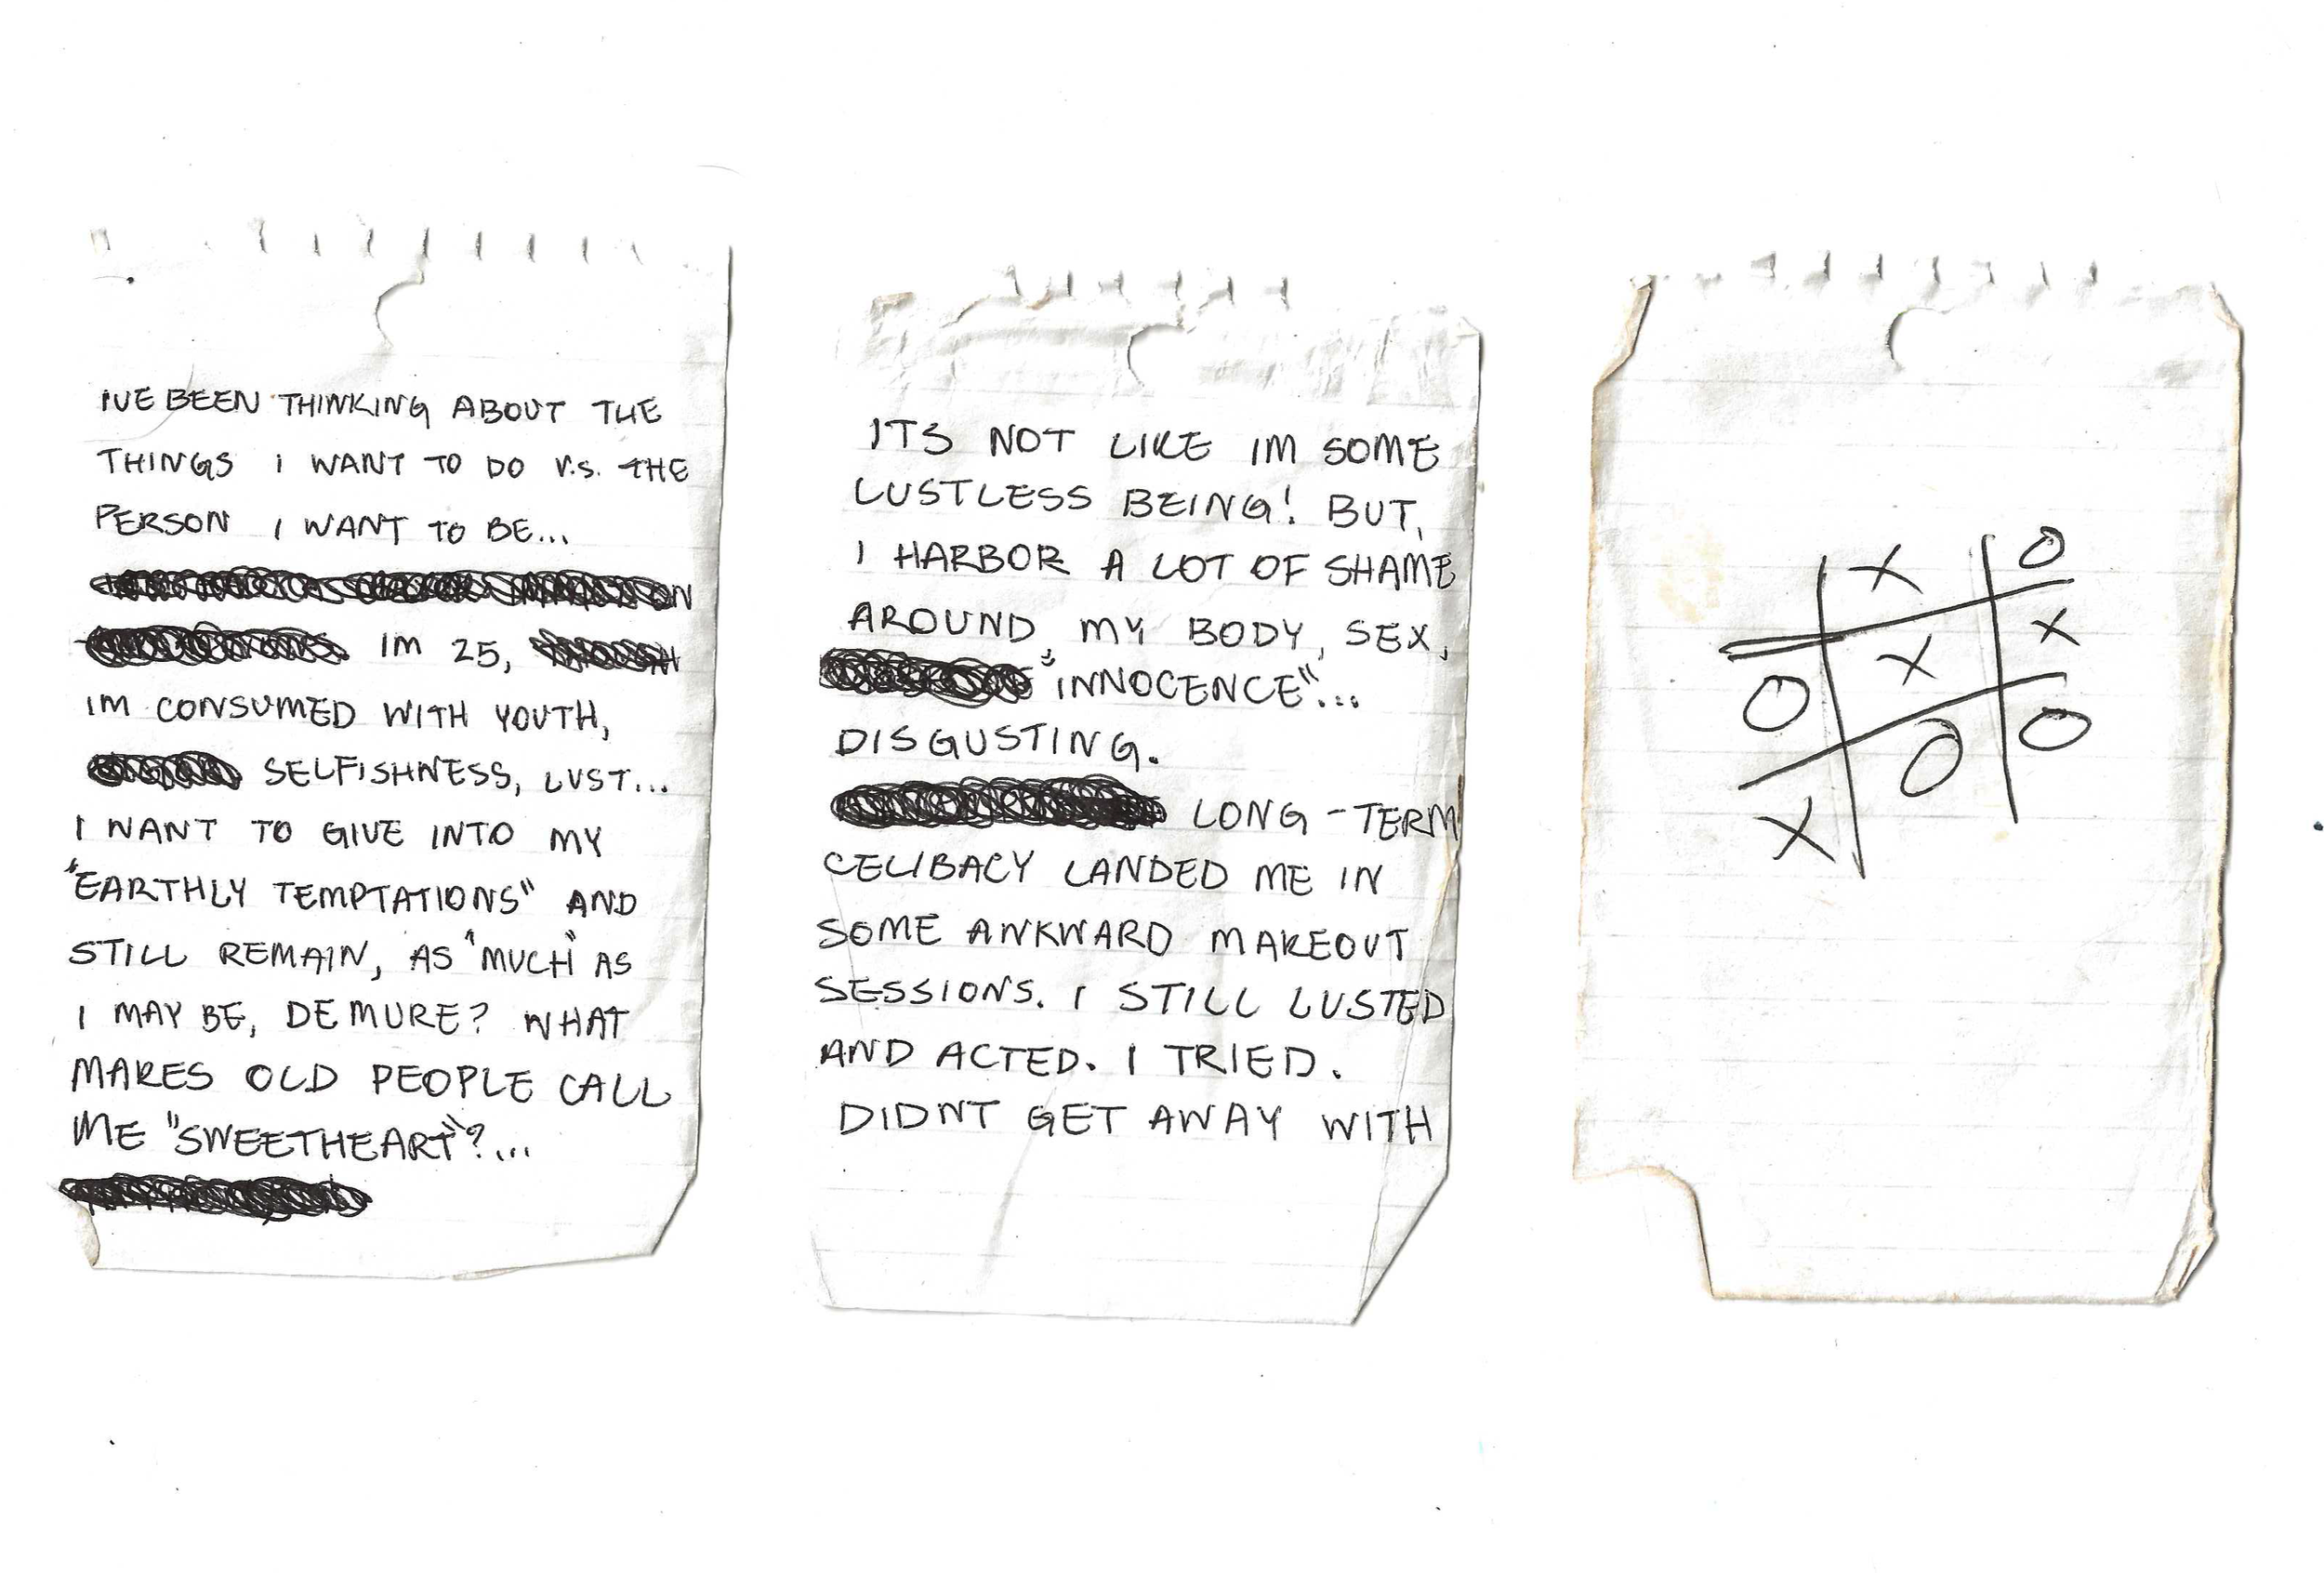 IVE BEEN THINKING ABOUT THE
THINGS I WANT TO DO V.S. THE
PERSON I WANT TO BE...
IM 25,
IM CONSUMED WITH YOUTH,
SELFISHNESS, LUST...
I WANT TO GIVE INTO MY
"EARTHLY TEMPTATIONS" AND
STILL REMAIN, AS "MUCH" AS
I MAY BE, DEMURE? WHAT
MAKES OLD PEOPLE CALL
ME "SWEETHEART"?...
ITS NOT LIKE IM SOME
LUSTLESS BEING! BUT,
I HARBOR A LOT OF SHAME
AROUND MY BODY, SEX,
"INNOCENCE"...
DISGUSTING.
LONG-TERM
CELIBACY LANDED ME IN
SOME AWKWARD MAKEOUT
SESSIONS. I STILL LUSTED
AND ACTED. I TRIED.
DIDNT GET AWAY WITH
X O
O X X
X O O